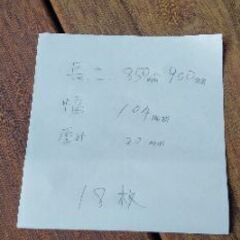 長さ 850mm 900mm
幅 104mm
厚み 20mm
18枚